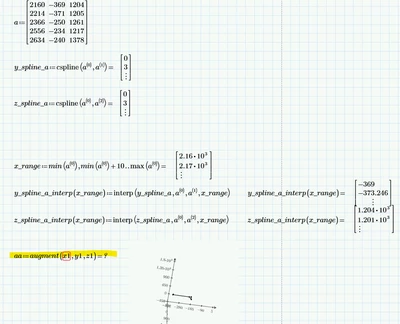 a := [2160 −369 1204
2214 −371 1205
2366 −250 1261
2556 −234 1217
2634 −240 1378]
y_spline_a := cspline(a^⟨0⟩, a^⟨1⟩) = [0
3
⋮]
z_spline_a := cspline(a^⟨0⟩, a^⟨2⟩) = [0
3
⋮]
x_range := min(a^⟨0⟩), min(a^⟨0⟩) + 10 .. max(a^⟨0⟩) = [2.16 • 10³
2.17 • 10³
⋮]
y_spline_a_interp(x_range) := interp(y_spline_a, a^⟨0⟩, a^⟨1⟩, x_range) y_spline_a_interp(x_range) = [−369
−373.246
⋮]
z_spline_a_interp(x_range) := interp(z_spline_a, a^⟨0⟩, a^⟨2⟩, x_range) z_spline_a_interp(x_range) = [1.204 • 10³
1.201 • 10³
⋮]
aa := augment(x1, y1, z1) = ?